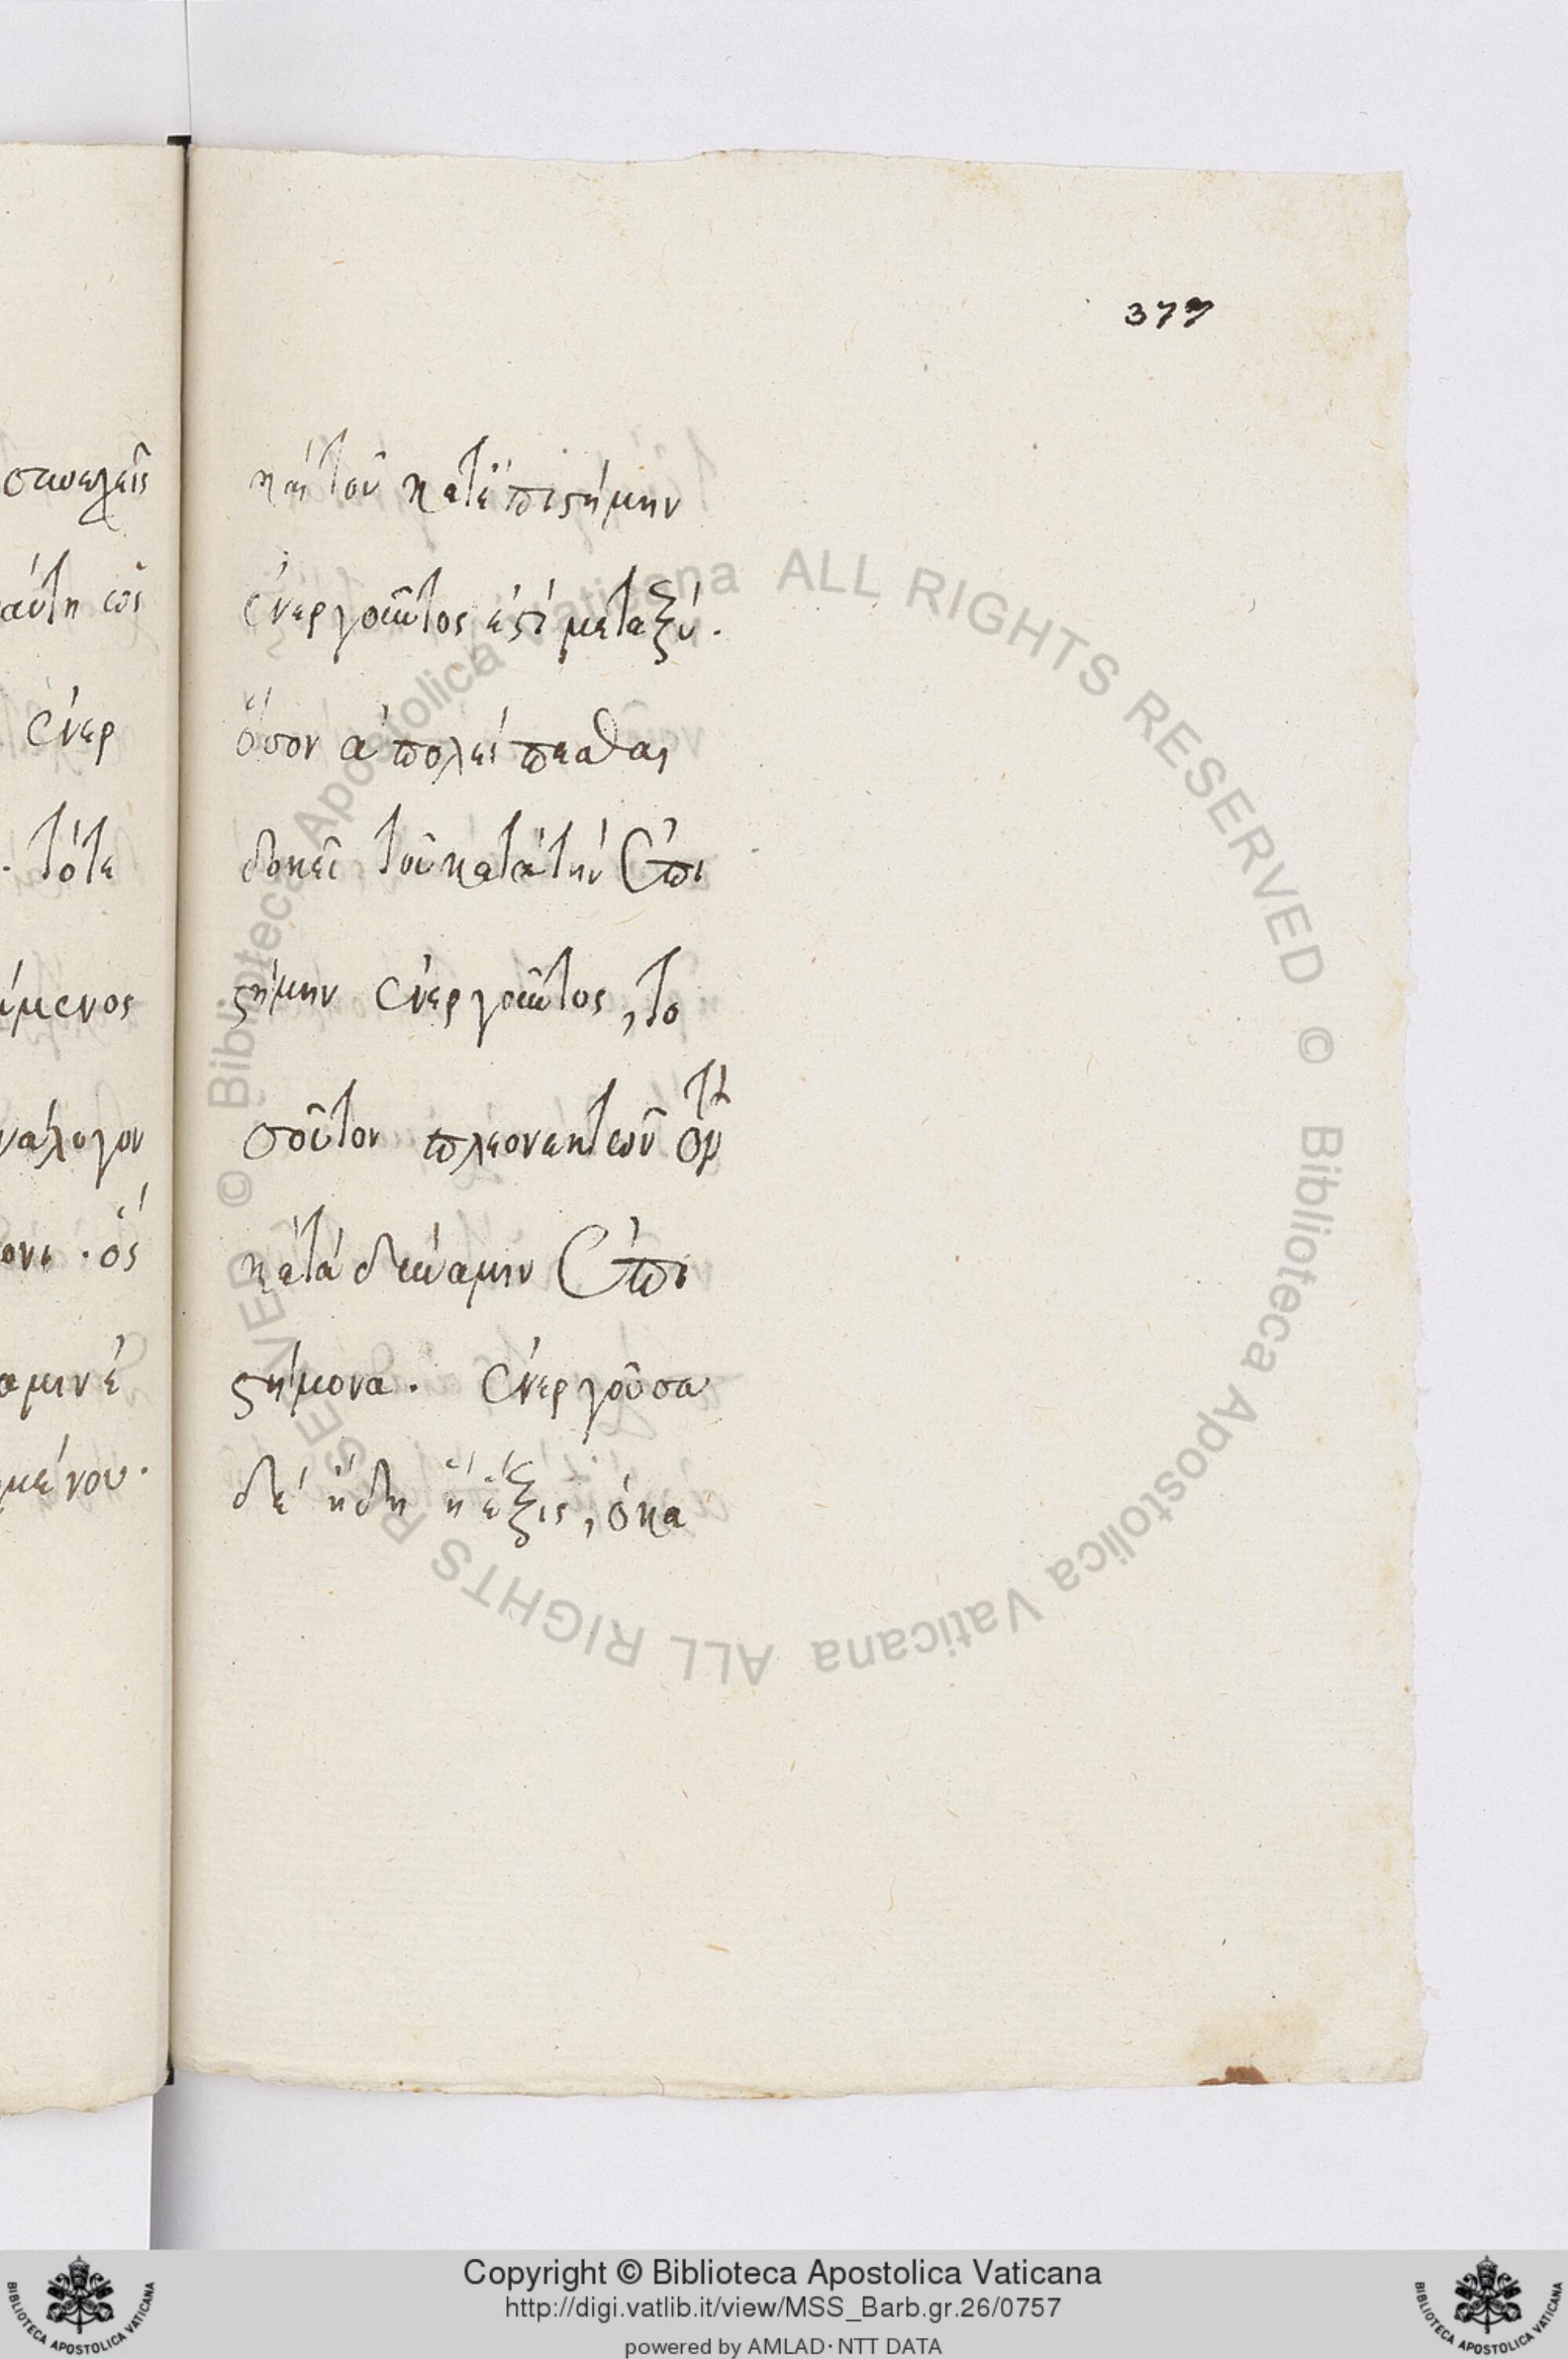 377
σιωπελεῖς
αύτη ὡς
ἐνερ
. τότε
ύμενος
νάλογον
ονι . ὅς
αμιν ἐ
μένου .
καὶ τοῦ κατεπιστήμην
ἐνεργοῦντος ἐστὶ μεταξύ .
ὅσον ἀπολείπεσθαι
δοκεῖ τοῦ κατὰ τὴν ἐπι
στήμην ἐνεργοῦντος , το
σοῦτον πλεονεκτῶν
κατὰ δύναμιν ἐπι
στήμονα . ἐνεργοῦσα
δὲ ἤδη ἡ ἕξις , ὁ κα
© Biblioteca Apostolica Vaticana ALL RIGHTS RESERVED © Biblioteca Apostolica Vaticana ALL RIGHTS RESERVED
BIBLIOTECA APOSTOLICA VATICANA
Copyright © Biblioteca Apostolica Vaticana
http://digi.vatlib.it/view/MSS_Barb.gr.26/0757
powered by AMLAD·NTT DATA
BIBLIOTECA APOSTOLICA VATICANA